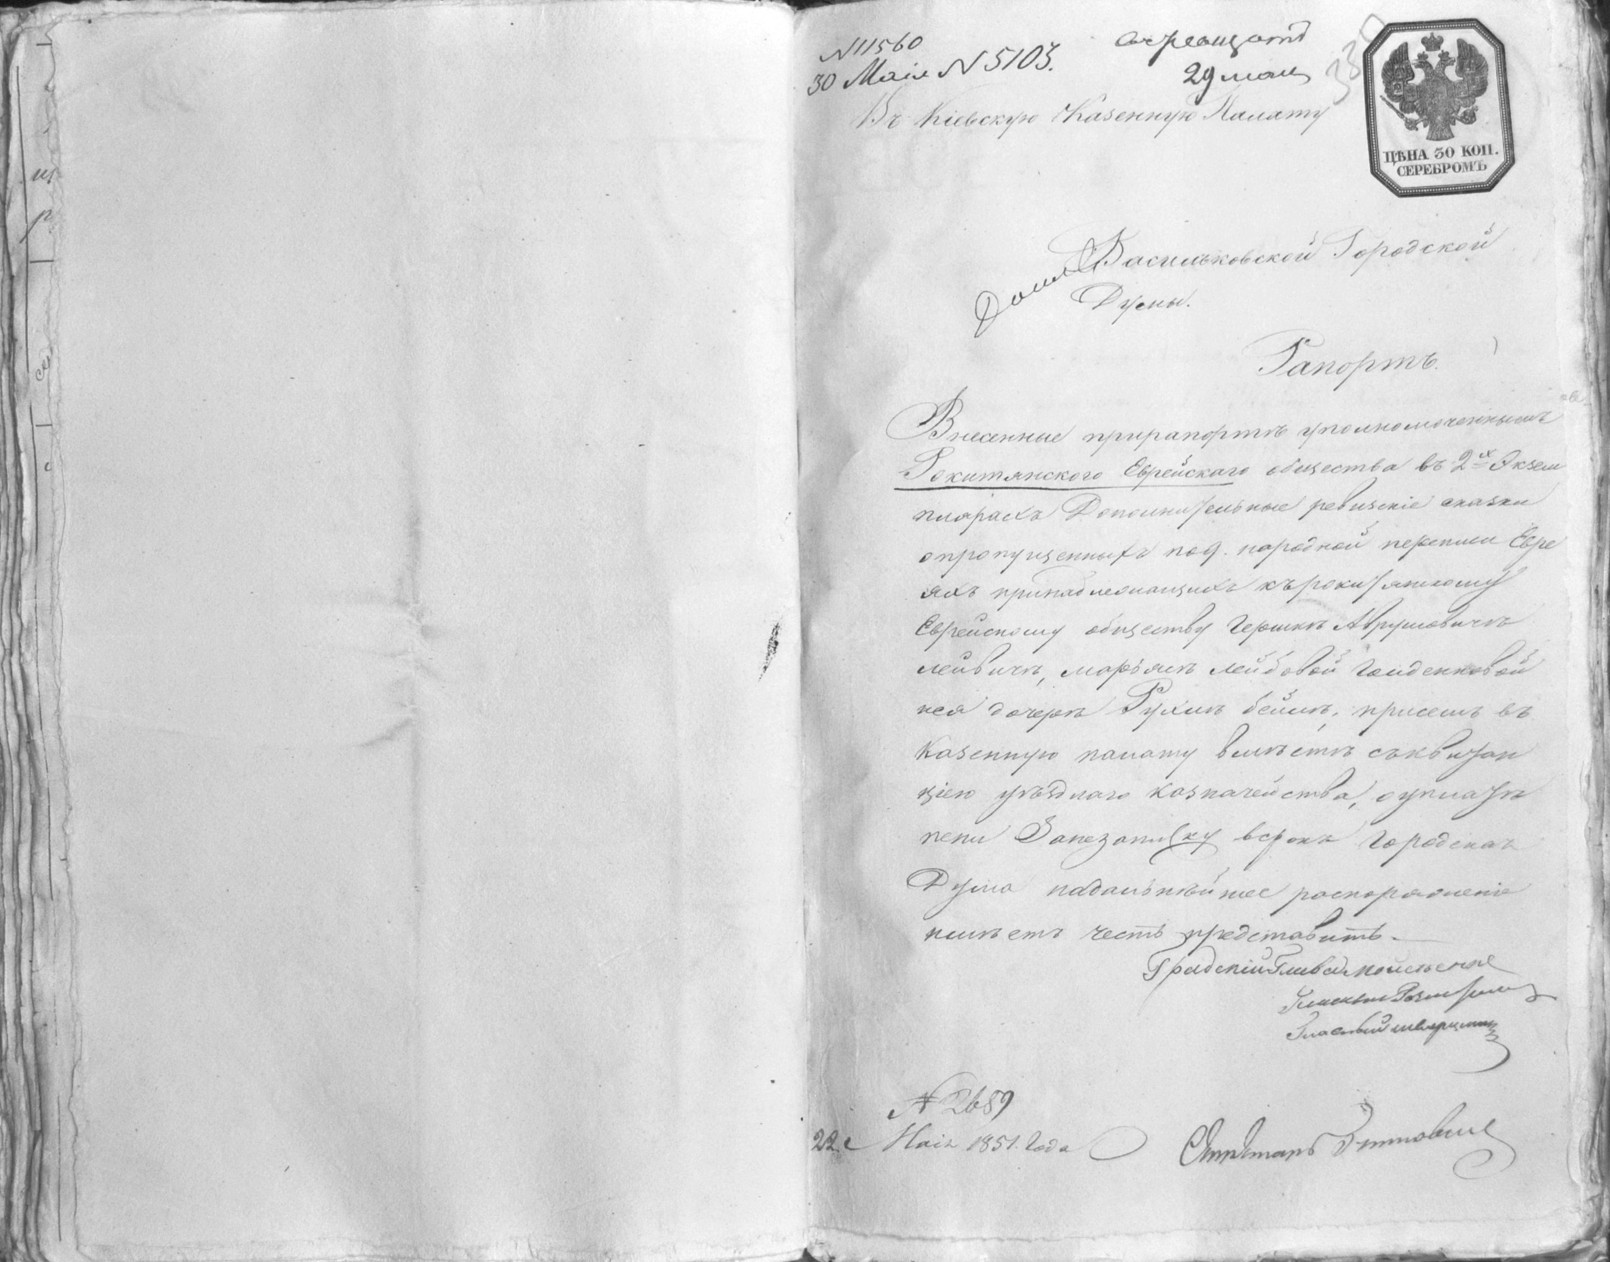 N 11560
30 Маія N 5103.
29 мая
330
Въ Кіевскую Казенную Палату
ЦѢНА 30 КОП.
СЕРЕБРОМЪ
Васильковской Городской
Думы.
Рапортъ.
Внесенные прирапортѣ уполномоченнымъ
Рокитянского Еврейскаго общества въ 2х Экзем
плярахъ Дополнительные ревизскіе сказки
опропущенныхъ по 9. народной переписи Евре
яхъ принадлежащихъ къ рокитянскому
Еврейскому обществу Гершкѣ Аврумовичѣ
лейвичѣ, марьямѣ лейбовой Гойденковой
иея дочерѣ Рухлѣ бейлѣ, присемъ въ
Казенную палату вмѣстѣ съквитан
ціею уѣзднаго казначейства, оуплатѣ
пени Занезаписку всрокъ Городская
Дума надальнѣйшее распоряженіе
имѣетъ честь представить.
Градскій Глава
Гласный
Гласный
N 2689
22 Маія 1851. Года
Секретарь